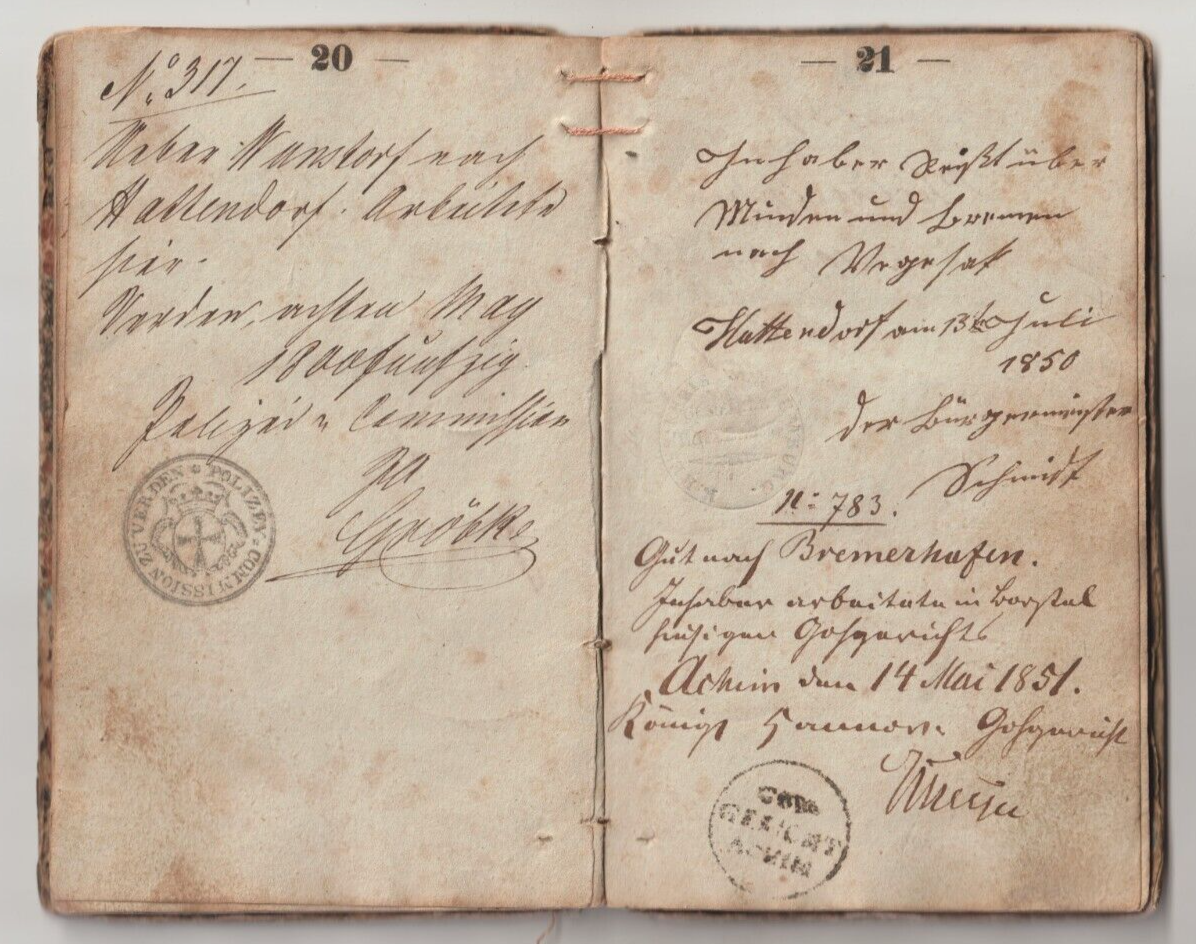 — 20 —
No. 317.
Ueber Wunstorf nach
Hattendorf. Arbeitete
hier.
Verden, achten May
1800fünfzig.
Polizei- Commission
Gröbke
POLIZEY-COMMISSION ZU VERDEN
— 21 —
Inhaber Reißt über
Minden und Bremen
nach Vegesak
Hattendorf am 13ten Juli
1850
der Bürgermeister
Schmidt
N: 783.
Gut nach Bremerhafen.
Inhaber arbeitete in Borstel
hiesigen Gohgerichts
Achim den 14 Mai 1851.
Königl Hannov. Gohgericht
GOHG
GERICHT
ACHIM